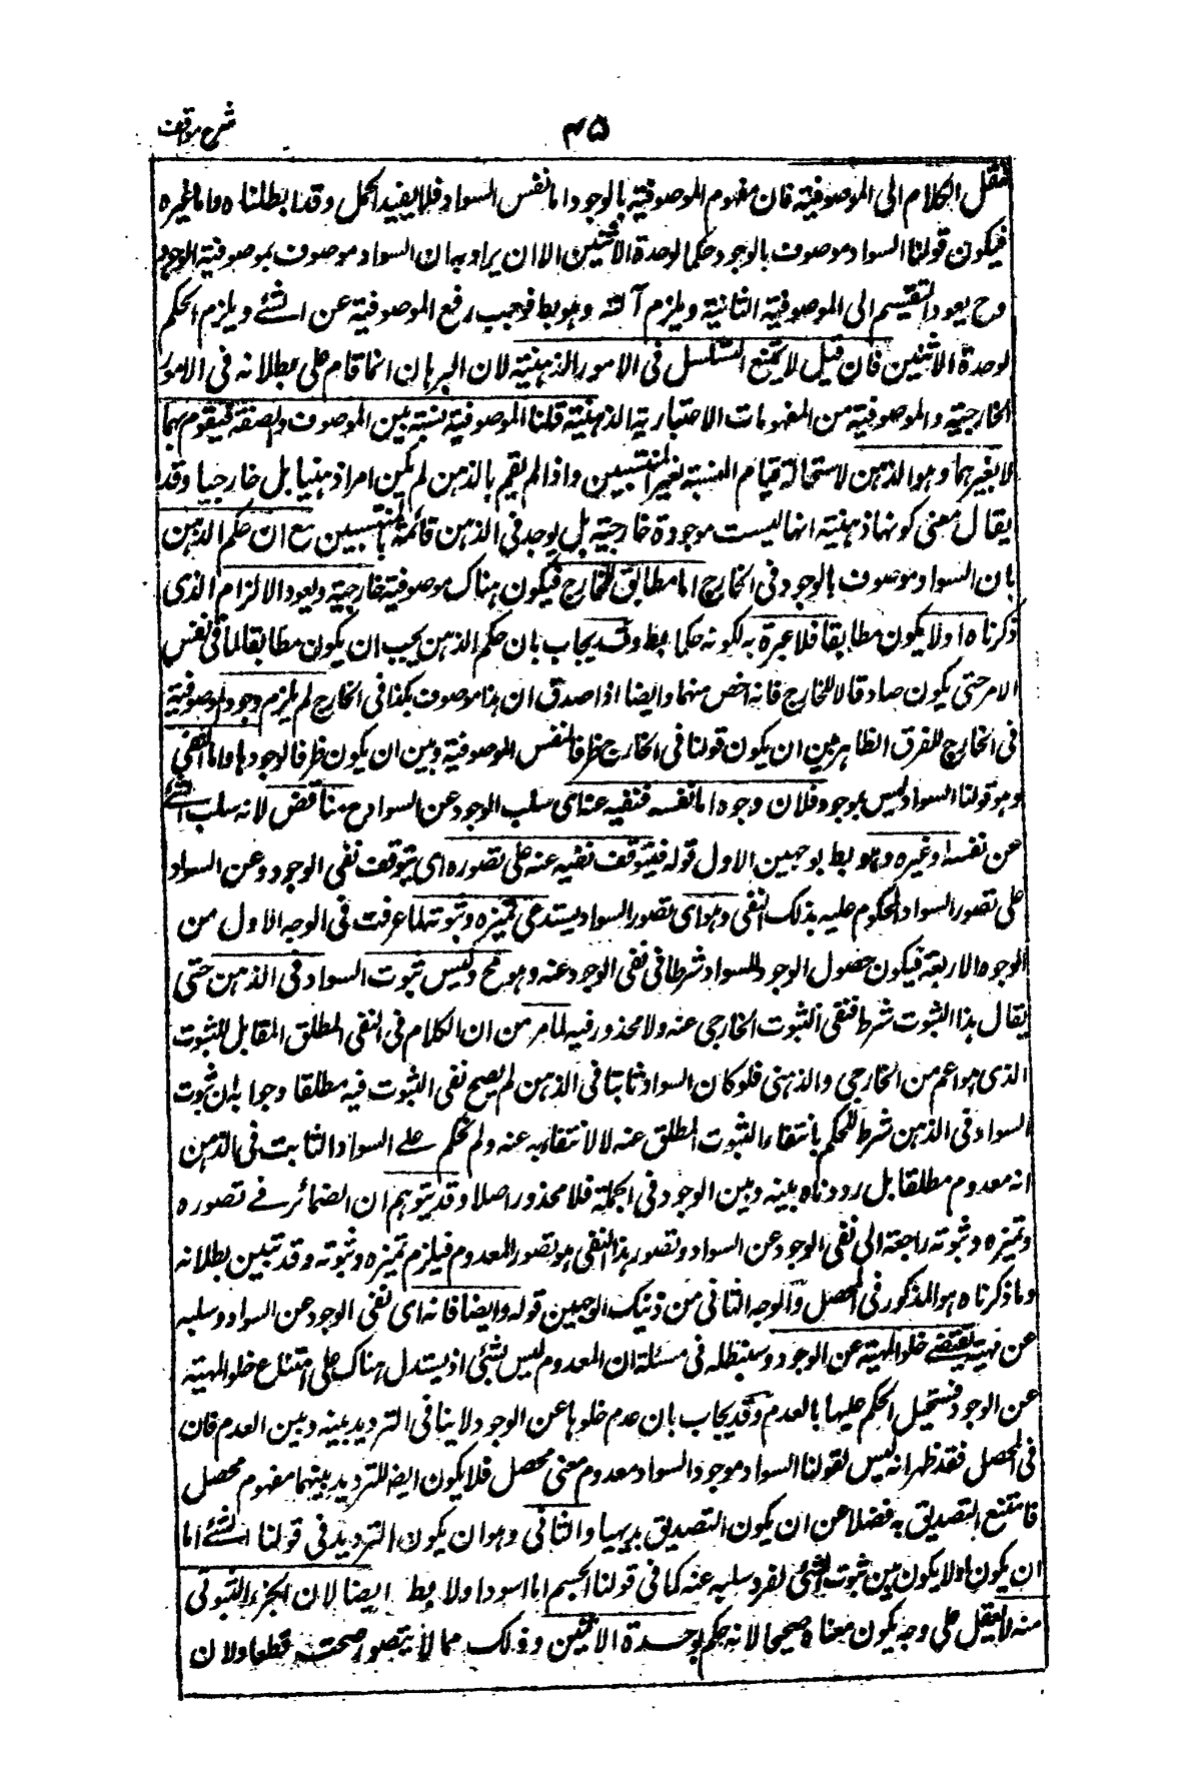 شرح مواقف
۴۵
فنقل الكلام الى الموصوفية فان مفهوم الموصوفية بالوجود اما نفس السواد فلا يفيد الحمل وقد ابطلناه واما غيره
فيكون قولنا السواد موصوف بالوجود حكما لوحدة الاثنين الا ان يراد به ان السواد موصوف بموصوفية الوجود
وح يعود التقسيم الى الموصوفية الثانية ويلزم آلته وهو بط فوجب رفع الموصوفية عن الشئ ويلزم الحكم
لوحدة الاثنين فان قيل لا يمتنع التسلسل فى الامور الذهنية لان البرهان انما قام على بطلانه فى الامور
الخارجية والموصوفية من المفهومات الاعتبارية الذهنية قلنا الموصوفية نسبة بين الموصوف والصفة فيقوم بهما
لا بغيرهما وهو الذهن لاستحالة قيام النسبة بغير المنتسبين واذا لم يقم بالذهن لم يكن امرا ذهنيا بل خارجيا وقد
يقال معنى كونها ذهنية انها ليست موجودة خارجية بل يوجد فى الذهن قائمة بالمنتسبين مع ان حكم الذهن
بان السواد موصوف بالوجود فى الخارج اما مطابق للخارج فيكون هناك موصوفية خارجية ويعود الالزام الذى
ذكرناه اولا يكون مطابقا فلا عبرة به لكونه حكما بط وقد يجاب بان حكم الذهن يجب ان يكون مطابقا لما فى نفس
الامر حتى يكون صادقا لا للخارج فانه اخص منهما وايضا اذا صدق ان هذا موصوف بكذا فى الخارج لم يلزم وجود الموصوفية
فى الخارج للفرق الظاهر بين ان يكون قولنا فى الخارج ظرفا لنفس الموصوفية وبين ان يكون ظرفا لوجودها واما النفى
وهو قولنا السواد ليس بموجود فلان وجوده اما نفسه فنفيه عنه اى سلب الوجود عن السواد ح مناقض لانه سلب الشئ
عن نفسه او غيره وهو بط بوجهين الاول قوله فيتوقف نفيه عنه على تصوره اى يتوقف نفى الوجود وعن السواد
على تصور السواد المحكوم عليه بذلك النفى وهو اى تصور السواد يستدعى تميزه وثبوته لما عرفت فى الوجه الاول من
الوجوه الاربعة فيكون حصول الوجود للسواد شرطا فى نفى الوجود عنه وهو مح وليس ثبوت السواد فى الذهن حتى
يقال هذا الثبوت شرط فنفى الثبوت الخارجى عنه ولا محذور فيه لما مر من ان الكلام فى النفى المطلق المقابل للثبوت
الذى هو اعم من الخارجى والذهنى فلو كان السواد ثابتا فى الذهن لم يصح نفى الثبوت فيه مطلقا وجوابه ان ثبوت
السواد فى الذهن شرط للحكم بانتفاء الثبوت المطلق عنه لا لانتفائه عنه ولم نحكم على السواد الثابت فى الذهن
انه معدوم مطلقا بل رددناه بينه وبين الوجود فى الجملة فلا محذور اصلا وقد يتوهم ان الضمائر فے تصوره
وتميزه وثبوته راجعة الى نفى الوجود عن السواد وتصور هذا النفى هو تصور المعدوم فيلزم تميزه وثبوته وقد تبين بطلانه
وما ذكرناه هو المذكور فى المحصل والوجه الثانى من ذينك الوجهين قوله وايضا فانه اى نفى الوجود عن السواد وسلبه
عن مهيته يقتضے خلو المهية عن الوجود وسنبطله فى مسئلة ان المعدوم ليس بشئ اذ يستدل هناك على امتناع خلو المهية
عن الوجود فنستحيل الحكم عليها بالعدم وقد يجاب بان عدم خلوها عن الوجود لا ينافى الترديد بينه وبين العدم فان
فى المحصل فقد ظهر انه ليس لقولنا السواد موجود السواد معدوم معنى محصل فلا يكون ايضا للترديد بينهما مفهوم محصل
فامتنع التصديق به فضلا عن ان يكون التصديق بديهيا والثانى وهو ان يكون الترديد فى قولنا الشئ اما
ان يكون اولا يكون بين ثبوت الشئ لفرد سلبه عنه كما فى قولنا الجسم اما اسود اولا بط ايضا لان الجزء الثبوتى
منه لا يعقل على وجه يكون معناه صحيحا لانه حكم لوحدة الاثنين وذلك مما لا يتصور صحته قطعا ولان